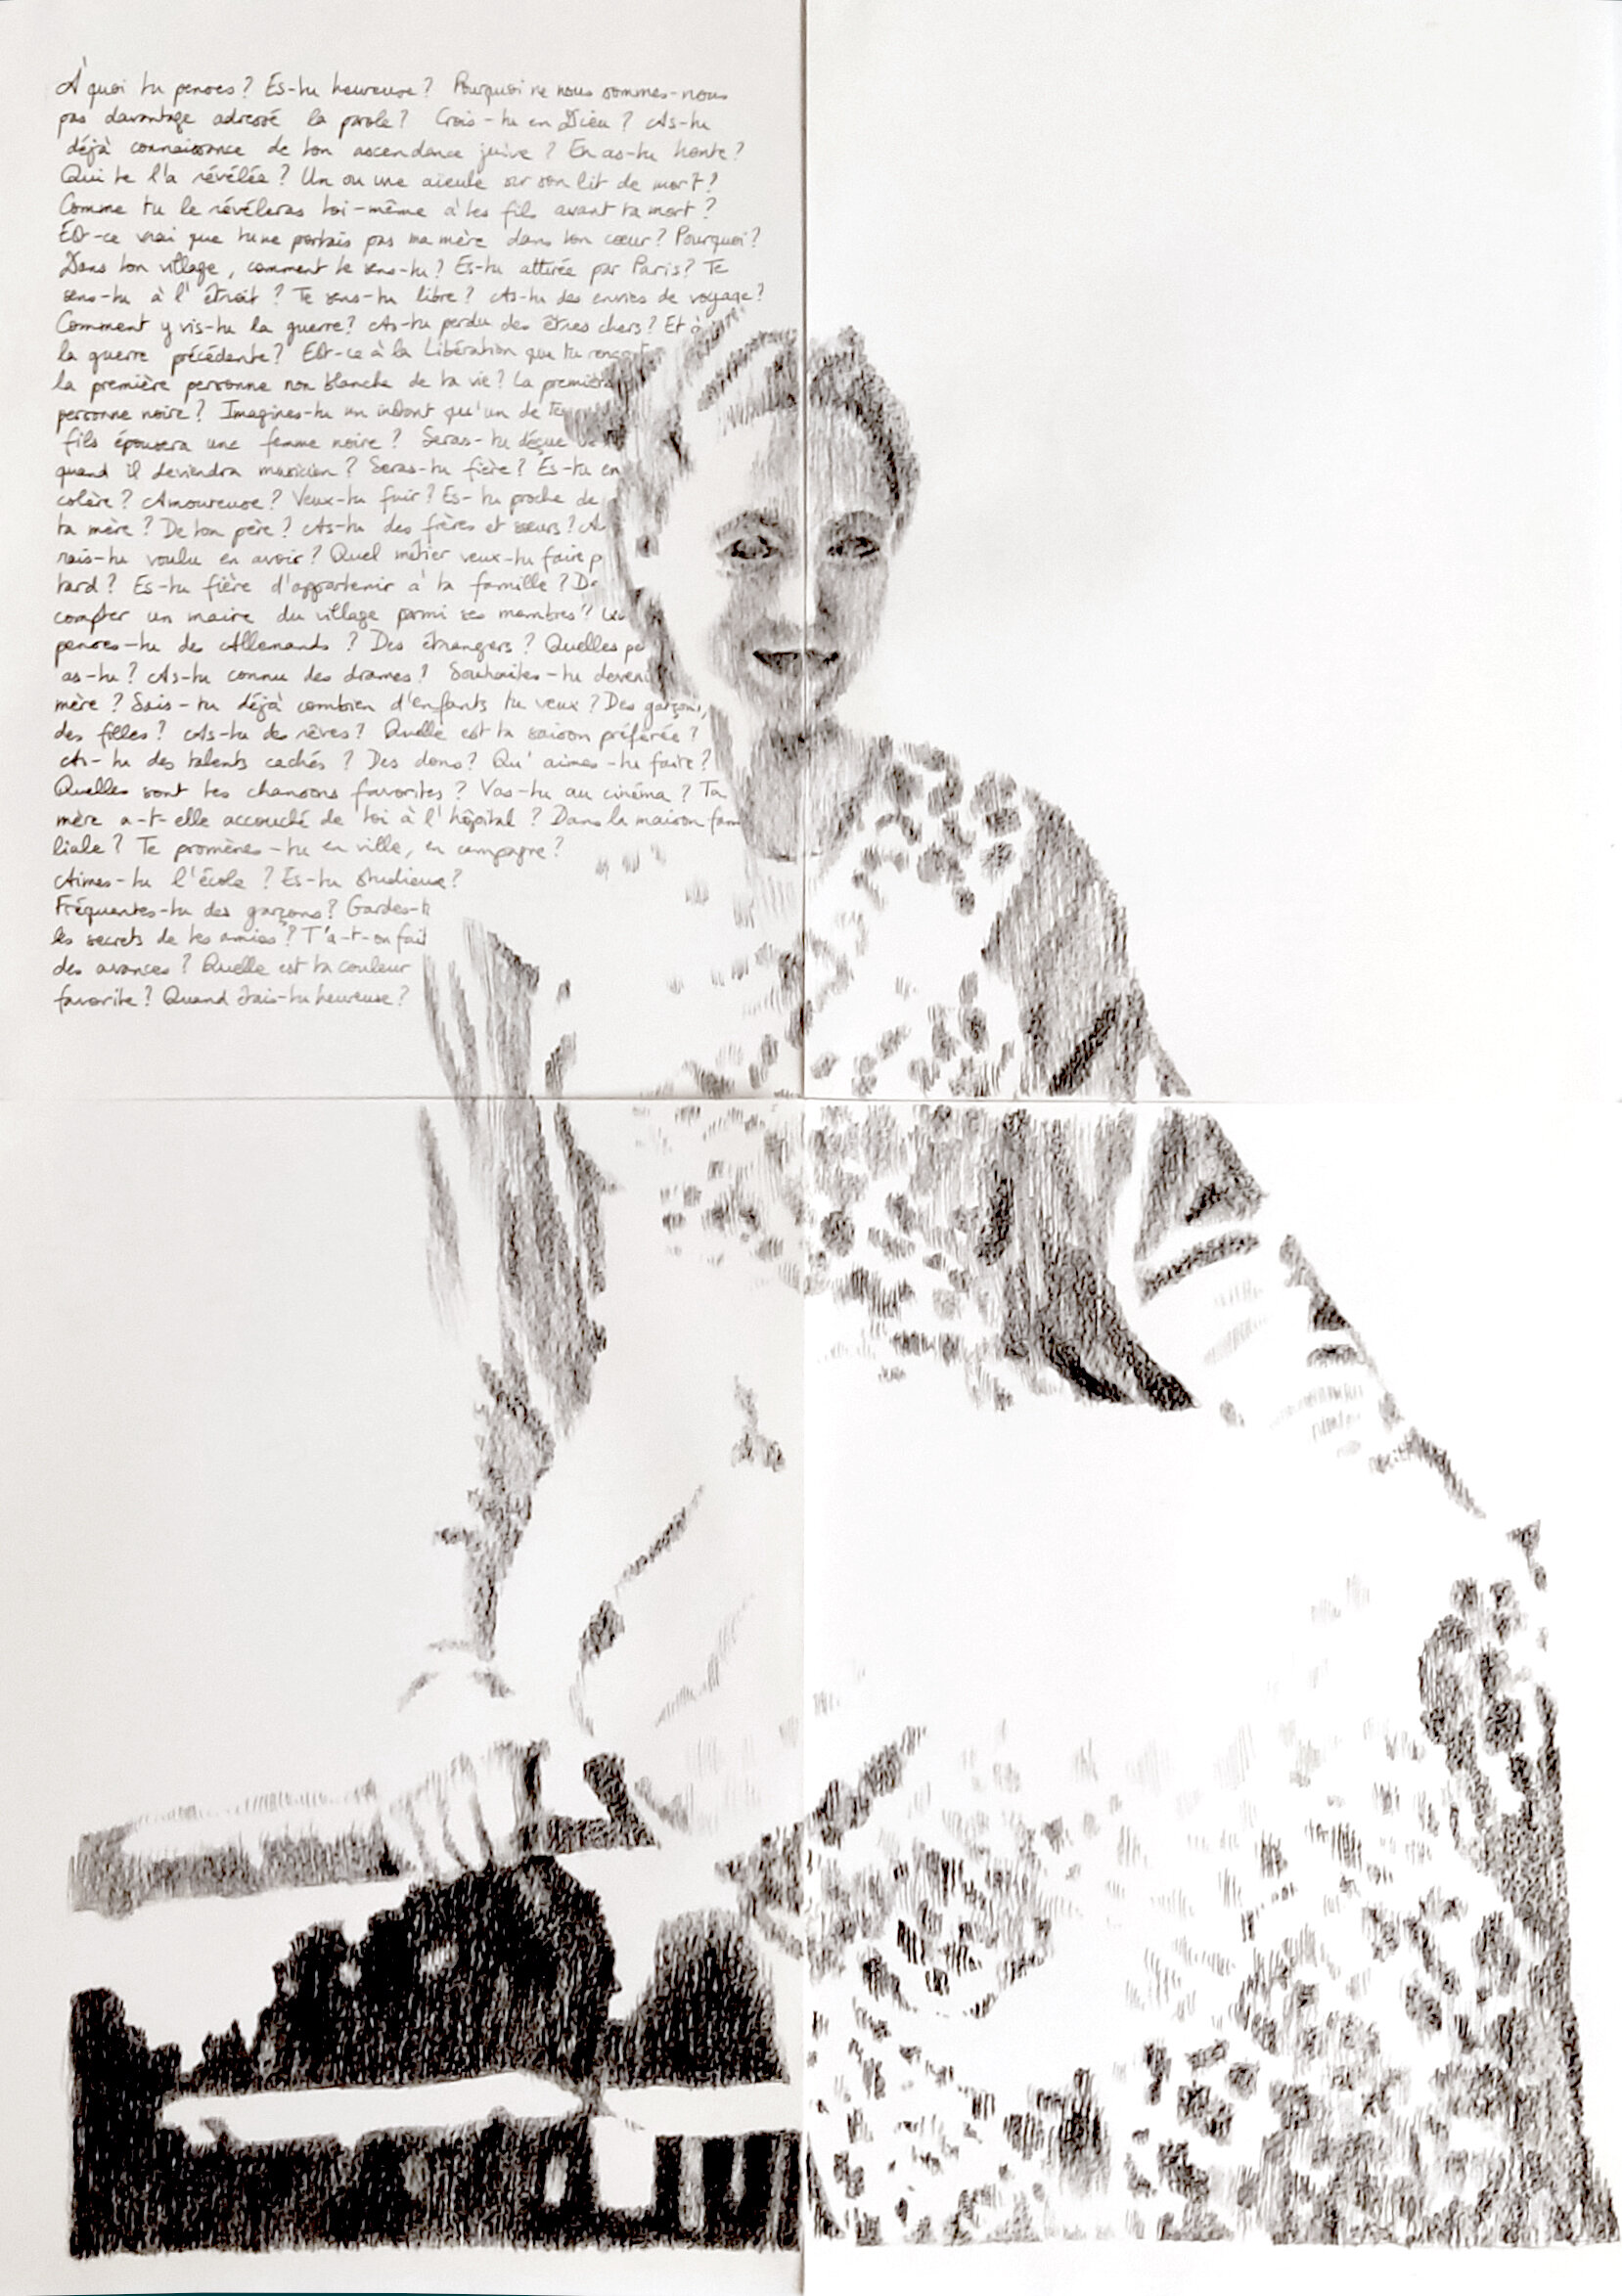 À quoi tu penses ? Es-tu heureuse ? Pourquoi ne nous sommes-nous
pas davantage adressé la parole ? Crois-tu en Dieu ? As-tu
déjà connaissance de ton ascendance juive ? En as-tu honte ?
Qui te l'a révélée ? Un ou une aïeule sur son lit de mort ?
Comme tu le révéleras toi-même à tes fils avant ta mort ?
Est-ce vrai que tu ne portais pas ma mère dans ton cœur ? Pourquoi ?
Dans ton village, comment te sens-tu ? Es-tu attirée par Paris ? Te
sens-tu à l'étroit ? Te sens-tu libre ? As-tu des envies de voyage ?
Comment y vis-tu la guerre ? As-tu perdu des êtres chers ? Et à
la guerre précédente ? Est-ce à la Libération que tu rencont
la première personne non blanche de ta vie ? La première
personne noire ? Imagines-tu un instant qu'un de tes
fils épousera une femme noire ? Seras-tu déçue
quand il deviendra musicien ? Seras-tu fière ? Es-tu en
colère ? Amoureuse ? Veux-tu fuir ? Es-tu proche de
ta mère ? De ton père ? As-tu des frères et sœurs ? Au
rais-tu voulu en avoir ? Quel métier veux-tu faire p
tard ? Es-tu fière d'appartenir à ta famille ? De
compter un maire du village parmi ses membres ?
penses-tu des Allemands ? Des étrangers ? Quelles pe
as-tu ? As-tu connu des drames ? Souhaites-tu deveni
mère ? Sais-tu déjà combien d'enfants tu veux ? Des garçons,
des filles ? As-tu des rêves ? Quelle est ta saison préférée ?
As-tu des talents cachés ? Des dons ? Qu'aimes-tu faire ?
Quelles sont tes chansons favorites ? Vas-tu au cinéma ? Ta
mère a-t-elle accouché de toi à l'hôpital ? Dans la maison fam
liale ? Te promènes-tu en ville, en campagne ?
Aimes-tu l'école ? Es-tu studieuse ?
Fréquentes-tu des garçons ? Gardes-t
les secrets de tes amies ? T'a-t-on fait
des avances ? Quelle est ta couleur
favorite ? Quand étais-tu heureuse ?